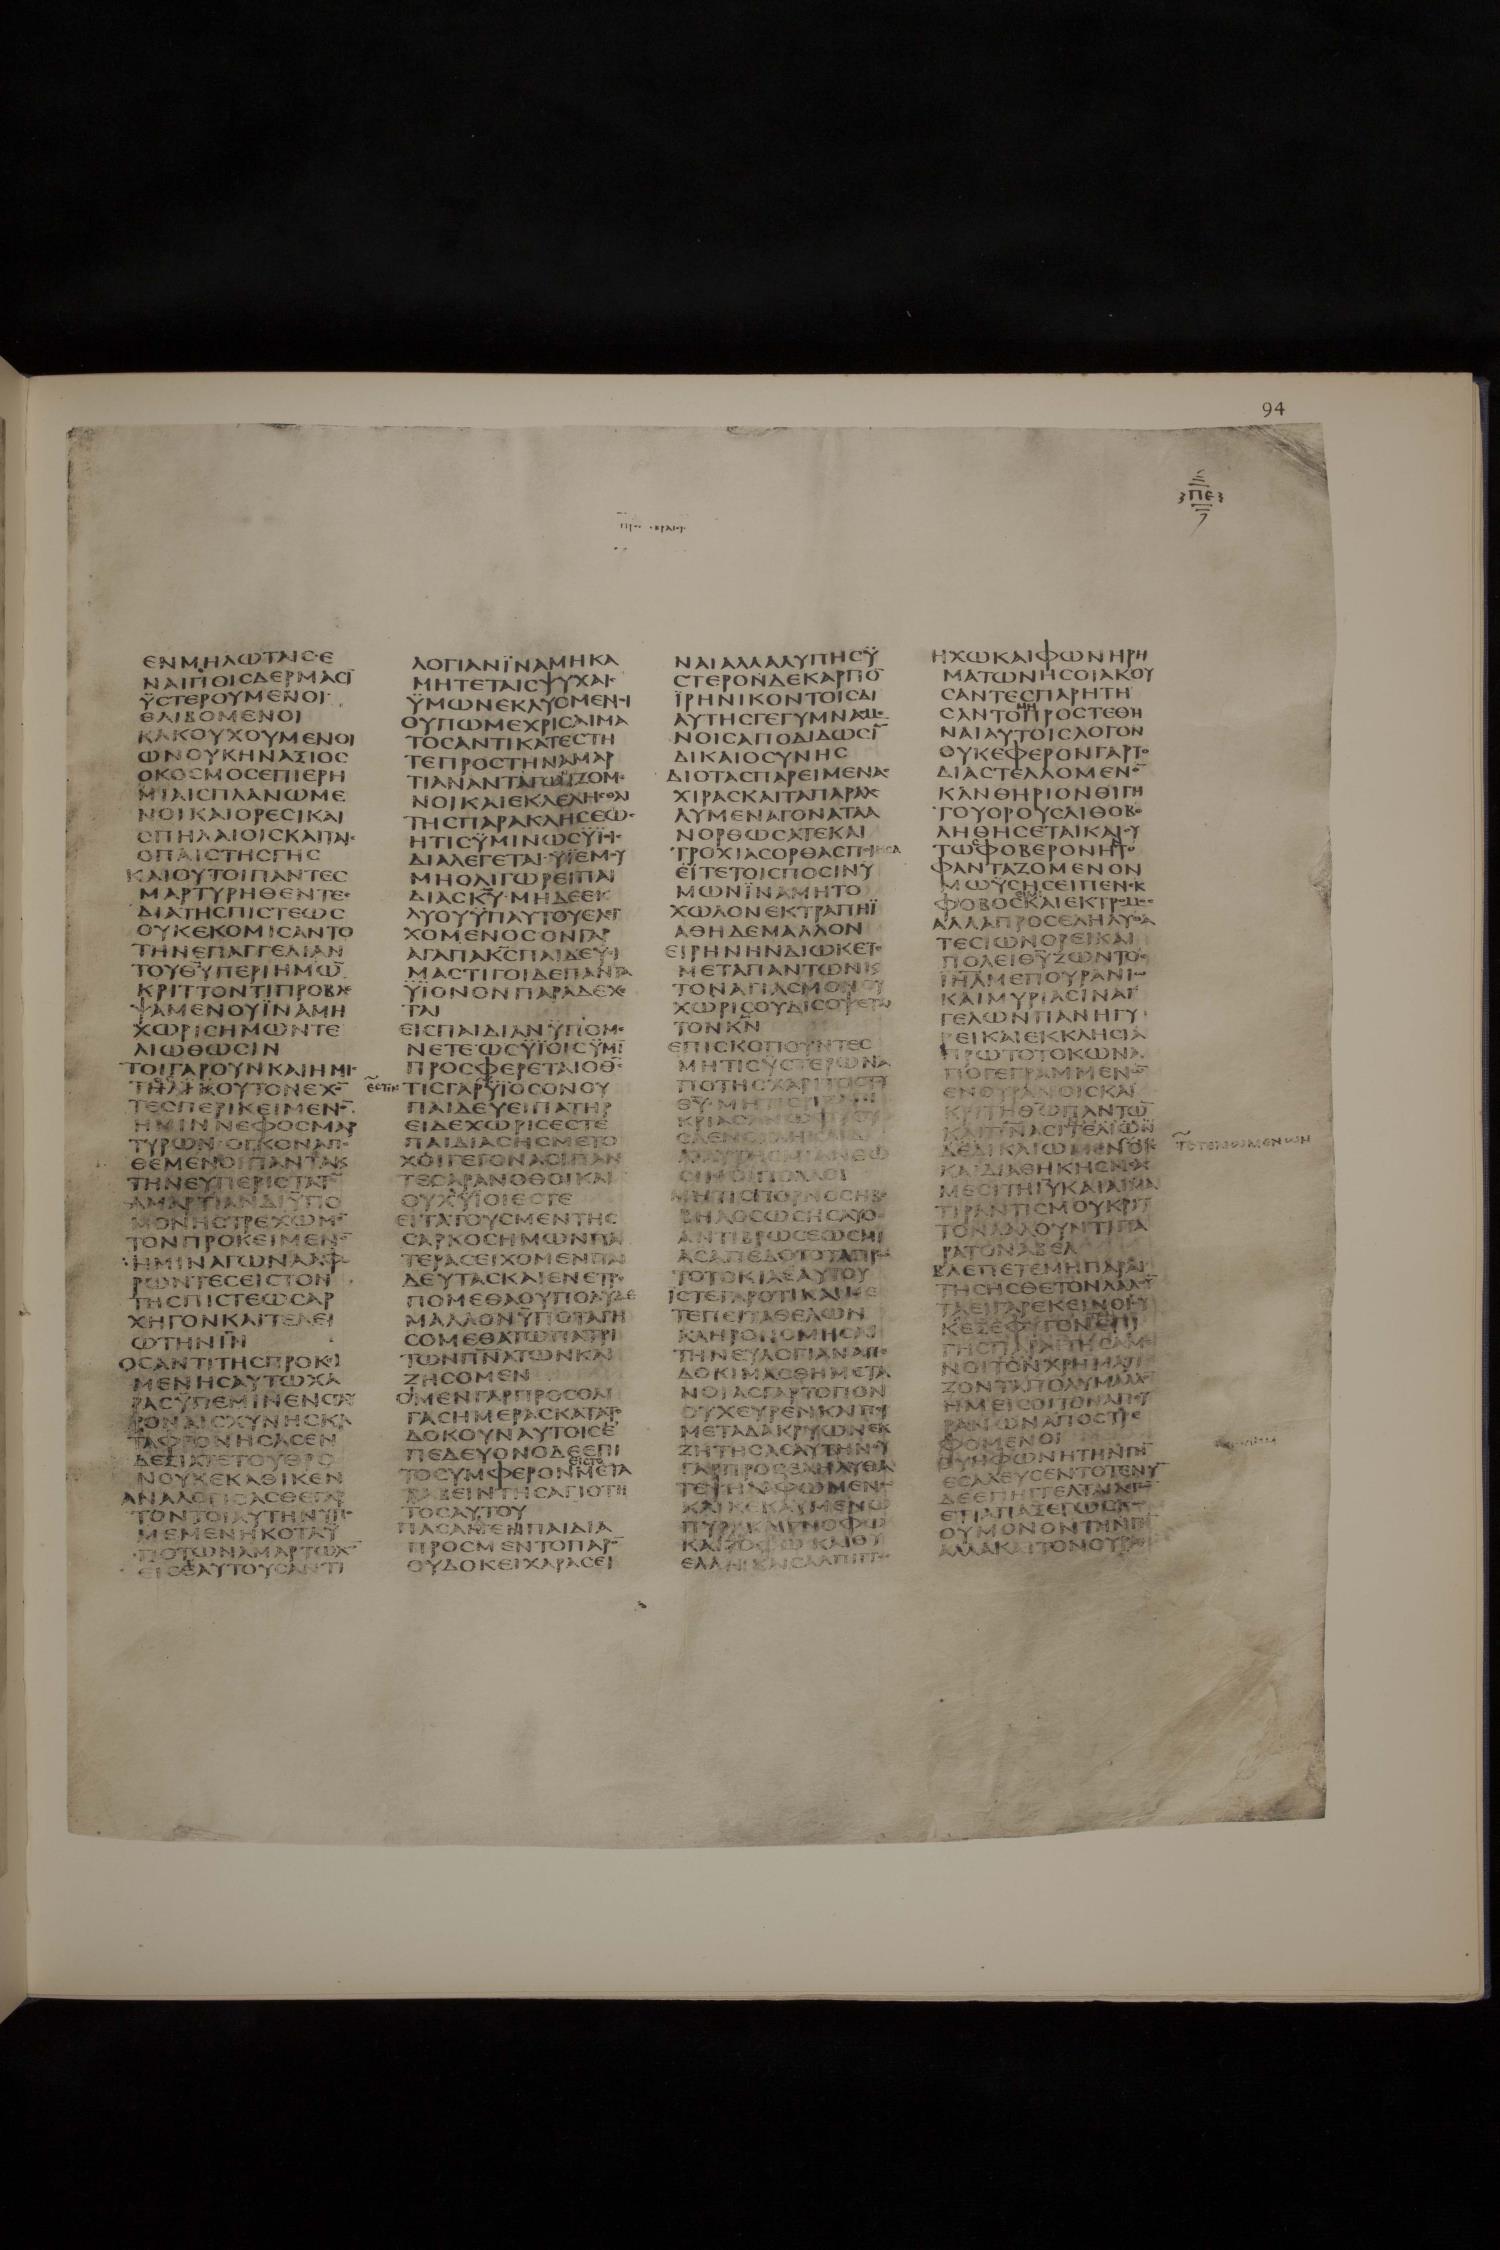 94
ΠΕ
ΕΝΜΗΛΩΤΑΙCΕ
ΝΑΙΓΙΟΙCΔΕΡΜΑCΙ̅
ΫCΤΕΡΟΥΜΕΝΟΙ
ΘΛΙΒΟΜΕΝΟΙ
ΚΑΚΟΥΧΟΥΜΕΝΟΙ
ΩΝΟΥΚΗΝΑΞΙΟC
ΟΚΟCΜΟCΕΠΙΕΡΗ
ΜΙΑΙCΠΛΑΝΩΜΕ
ΝΟΙΚΑΙΟΡΕCΙΚΑΙ
CΠΗΛΑΙΟΙCΚΑΙΤΑΙ
ΟΠΑΙCΤΗCΓΗC
ΚΑΙΟΥΤΟΙΠΑΝΤΕC
ΜΑΡΤΥΡΗΘΕΝΤΕ
ΔΙΑΤΗCΠΙCΤΕΩC
ΟΥΚΕΚΟΜΙCΑΝΤΟ
ΤΗΝΕΠΑΓΓΕΛΙΑΝ
ΤΟΥΘ̅Υ̅ΠΕΡΙΗΜΩ̅
ΚΡΙΤΤΟΝΤΙΠΡΟΒΛΕ
ΨΑΜΕΝΟΥΪΝΑΜΗ
ΧΩΡΙCΗΜΩΝΤΕ
ΛΙΩΘΩCΙΝ
ΤΟΙΓΑΡΟΥΝΚΑΙΗΜΙ
ΤΗΛΙΚΟΥΤΟΝΕΧΟ̅
ΤΕCΠΕΡΙΚΕΙΜΕΝΟ̅
ΗΜΙΝΝΕΦΟCΜΑΡ
ΤΥΡΩΝΟΓΚΟΝΑΠΟ
ΘΕΜΕΝΟΙΠΑΝΤΑΚ
ΤΗΝΕΥΠΕΡΙCΤΑΤΟ̅
ΑΜΑΡΤΙΑΝΔΙΫΠΟ
ΜΟΝΗCΤΡΕΧΩΜΕ̅
ΤΟΝΠΡΟΚΕΙΜΕΝΟ̅
ΗΜΙΝΑΓΩΝΑΑΦΟ
ΡΩΝΤΕCΕΙCΤΟΝ
ΤΗCΠΙCΤΕΩCΑΡ
ΧΗΓΟΝΚΑΙΤΕΛΕΙ
ΩΤΗΝΙ̅Ν̅
ΟCΑΝΤΙΤΗCΠΡΟΚΙ
ΜΕΝΗCΑΥΤΩΧΑ
ΡΑCΫΠΕΜΙΝΕΝCΤΑΥ
ΡΟΝΑΙCΧΥΝΗCΚΑ
ΤΑΦΡΟΝΗCΑCΕΝ
ΔΕΞΙΑΤΕΤΟΥΘΡΟ
ΝΟΥΚΕΚΑΘΙΚΕΝ
ΑΝΑΛΟΓΙCΑCΘΕΓΑΡ
ΤΟΝΤΟΙΑΥΤΗΝΫΠΟ
ΜΕΜΕΝΗΚΟΤΑΫ
ΠΟΤΩΝΑΜΑΡΤΩΛΩ̅
ΕΙCΕΑΥΤΟΥCΑΝΤΙ
ΛΟΓΙΑΝΪΝΑΜΗΚΑ
ΜΗΤΕΤΑΙCΨΥΧΑΙC
ΫΜΩΝΕΚΛΥΟΜΕΝΟΙ
ΟΥΠΩΜΕΧΡΙCΑΙΜΑ
ΤΟCΑΝΤΙΚΑΤΕCΤΗ
ΤΕΠΡΟCΤΗΝΑΜΑΡ
ΤΙΑΝΑΝΤΑΓΩΝΙΖΟΜΕ
ΝΟΙΚΑΙΕΚΛΕΛΗCΘΑΙ
ΤΗCΠΑΡΑΚΛΗCΕΩC
ΗΤΙCΫΜΙΝΩCΫΪΟΙ
ΔΙΑΛΕΓΕΤΑΙΫΪΕΜΟΥ
ΜΗΟΛΙΓΩΡΕΙΠΑΙ
ΔΙΑCΚ̅Υ̅ΜΗΔΕΕΚ
ΛΥΟΥΫΠΑΥΤΟΥΕΛΕΓ
ΧΟΜΕΝΟCΟΝΓΑΡ
ΑΓΑΠΑΚ̅C̅ΠΑΙΔΕΥΕΙ
ΜΑCΤΙΓΟΙΔΕΠΑΝΤΑ
ΫΪΟΝΟΝΠΑΡΑΔΕΧΕ
ΤΑΙ
ΕΙCΠΑΙΔΙΑΝΫΠΟΜΕ
ΝΕΤΕΩCΫΪΟΙCΫΜΙ̅
ΠΡΟCΦΕΡΕΤΑΙΟΘ̅C̅
ΕCΤΙΝ ΤΙCΓΑΡΫΪΟCΟΝΟΥ
ΠΑΙΔΕΥΕΙΠΑΤΗΡ
ΕΙΔΕΧΩΡΙCΕCΤΕ
ΠΑΙΔΙΑCΗCΜΕΤΟ
ΧΟΙΓΕΓΟΝΑCΙΠΑΝ
ΤΕCΑΡΑΝΟΘΟΙΚΑΙ
ΟΥΧΫΪΟΙΕCΤΕ
ΕΙΤΑΤΟΥCΜΕΝΤΗC
CΑΡΚΟCΗΜΩΝΠΑ
ΤΕΡΑCΕΙΧΟΜΕΝΠΑΙ
ΔΕΥΤΑCΚΑΙΕΝΕΤΡΕ
ΠΟΜΕΘΑΟΥΠΟΛΥΔΕ
ΜΑΛΛΟΝΫΠΟΤΑΓΗ
CΟΜΕΘΑΤΩΠΑΤΡΙ
ΤΩΝΠ̅Ν̅ΑΤΩΝΚΑΙ
ΖΗCΟΜΕΝ
ΟΙΜΕΝΓΑΡΠΡΟCΟΛΙ
ΓΑCΗΜΕΡΑCΚΑΤΑΤΟ
ΔΟΚΟΥΝΑΥΤΟΙCΕ
ΠΕΔΕΥΟΝΟΔΕΕΠΙ
ΤΟCΥΜΦΕΡΟΝΕΙCΤΟΜΕΤΑ
ΛΑΒΕΙΝΤΗCΑΓΙΟΤΗ
ΤΟCΑΥΤΟΥ
ΠΑCΑΜΕΝΠΑΙΔΙΑ
ΠΡΟCΜΕΝΤΟΠΑΡΟ̅
ΟΥΔΟΚΕΙΧΑΡΑCΕΙ
ΝΑΙΑΛΛΑΛΥΠΗCΫ
CΤΕΡΟΝΔΕΚΑΡΠΟ̅
ΪΡΗΝΙΚΟΝΤΟΙCΔΙ
ΑΥΤΗCΓΕΓΥΜΝΑCΜΕ
ΝΟΙCΑΠΟΔΙΔΩCΙ̅
ΔΙΚΑΙΟCΥΝΗC
ΔΙΟΤΑCΠΑΡΕΙΜΕΝΑC
ΧΙΡΑCΚΑΙΤΑΠΑΡΑΛΕ
ΛΥΜΕΝΑΓΟΝΑΤΑΑ
ΝΟΡΘΩCΑΤΕΚΑΙ
ΤΡΟΧΙΑCΟΡΘΑCΠΟΙΗCΑ
ΕΪΤΕΤΟΙCΠΟCΙΝΫ
ΜΩΝΪΝΑΜΗΤΟ
ΧΩΛΟΝΕΚΤΡΑΠΗΪ
ΑΘΗΔΕΜΑΛΛΟΝ
ΕΙΡΗΝΗΝΔΙΩΚΕΤΕ
ΜΕΤΑΠΑΝΤΩΝΚ
ΤΟΝΑΓΙΑCΜΟΝΟΥ
ΧΩΡΙCΟΥΔΙCΟΨΕΤΑΙ
ΤΟΝΚ̅Ν̅
ΕΠΙCΚΟΠΟΥΝΤΕC
ΜΗΤΙCΫCΤΕΡΩΝΑ
ΠΟΤΗCΧΑΡΙΤΟCΤΟΥ
CΙΝΟΙΠΟΛΛΟΙ
ΜΗΤΙCΠΟΡΝΟCΗΒΕ
ΒΗΛΟCΩCΗCΑΥΟ
ΑΝΤΙΒΡΩCΕΩCΜΙ
ΑCΑΠΕΔΟΤΟΤΑΠΡΩ
ΤΟΤΟΚΙΑΕΑΥΤΟΥ
ΙCΤΕΓΑΡΟΤΙΚΑΙΜΕ
ΤΕΠΕΙΤΑΘΕΛΩΝ
ΚΛΗΡΟΝΟΜΗCΑΙ
ΤΗΝΕΥΛΟΓΙΑΝΑΠΕ
ΔΟΚΙΜΑCΘΗΜΕΤΑ
ΝΟΙΑCΓΑΡΤΟΠΟΝ
ΟΥΧΕΥΡΕΝΚΑΙΠΕΡ
ΜΕΤΑΔΑΚΡΥΩΝΕΚ
ΖΗΤΗCΑCΑΥΤΗΝΟΥ
ΓΑΡΠΡΟCΕΛΗΛΥΘΑ
ΤΕΨΗΛΑΦΩΜΕΝΩ
ΚΑΙΚΕΚΑΥΜΕΝΩ
ΠΥΡΙΚΑΙΓΝΟΦΩ
ΚΑΙΖΟΦΩΚΑΙΘΥ
ΕΛΛΗΚΑΙCΑΛΠΙΓΓΟC
ΗΧΩΚΑΙΦΩΝΗΡΗ
ΜΑΤΩΝΗCΟΙΑΚΟΥ
CΑΝΤΕCΠΑΡΗΤΗ
CΑΝΤΟΜΗΠΡΟCΤΕΘΗ
ΝΑΙΑΥΤΟΙCΛΟΓΟΝ
ΟΥΚΕΦΕΡΟΝΓΑΡΤΟ
ΔΙΑCΤΕΛΛΟΜΕΝΟ̅
ΚΑΝΘΗΡΙΟΝΘΙΓΗ
ΤΟΥΟΡΟΥCΛΙΘΟΒΟ
ΛΗΘΗCΕΤΑΙΚΑΙΟΥ
ΤΩCΦΟΒΕΡΟΝΗΝΤΟ
ΦΑΝΤΑΖΟΜΕΝΟΝ
ΜΩΫCΗCΕΙΠΕΝΕΚ
ΦΟΒΟCΕΙΜΙΚΑΙΕΚΤΡΟΜΟC
ΑΛΛΑΠΡΟCΕΛΗΛΥΘΑ
ΤΕCΙΩΝΟΡΕΙΚΑΙ
ΠΟΛΕΙΘ̅Υ̅ΖΩΝΤΟC
Ϊ̅Η̅Λ̅Μ̅ΕΠΟΥΡΑΝΙΩ
ΚΑΙΜΥΡΙΑCΙΝΑΓ
ΓΕΛΩΝΠΑΝΗΓΥ
ΡΕΙΚΑΙΕΚΚΛΗCΙΑ
ΠΡΩΤΟΤΟΚΩΝΑ
ΠΟΓΕΓΡΑΜΜΕΝΩ̅
ΕΝΟΥΡΑΝΟΙCΚΑΙ
ΚΡΙΤΗΘ̅Ω̅ΠΑΝΤΩ̅
ΔΕΔΙΚΑΙΩΜΕΝΟΙC
ΚΑΙΔΙΑΘΗΚΗCΝΕΑC
ΜΕCΙΤΗΙ̅Υ̅ΚΑΙΑΙΜΑ
ΤΙΡΑΝΤΙCΜΟΥΚΡΙΤ
ΤΟΝΛΑΛΟΥΝΤΙΠΑ
ΡΑΤΟΝΑΒΕΛ
ΒΛΕΠΕΤΕΜΗΠΑΡΑΙ
ΤΗCΗCΘΕΤΟΝΛΑΛΟΥ̅
ΤΑΕΙΓΑΡΕΚΕΙΝΟΙΟΥ
ΚΕΞΕΦΥΓΟΝΕΠΙ
ΓΗCΠΑΡΑΙΤΗCΑΜΕ
ΝΟΙΤΟΝΧΡΗΜΑΤΙ
ΖΟΝΤΑΠΟΛΥΜΑΛΛΟ̅
ΗΜΕΙCΟΙΤΟΝΑΠΟΥ
ΡΑΝΩΝΑΠΟCΤΡΕ
ΦΟΜΕΝΟΙ
ΟΥΗΦΩΝΗΤΗΝΓΗ̅
ΕCΑΛΕΥCΕΝΤΟΤΕΝΥ̅
ΔΕΕΠΗΓΓΕΛΤΑΙΛΕΓΩ̅
ΕΤΙΑΠΑΞΕΓΩCΙCΩ
ΟΥΜΟΝΟΝΤΗΝΓΗ̅
ΑΛΛΑΚΑΙΤΟΝΟΥΡΑΝΟ̅